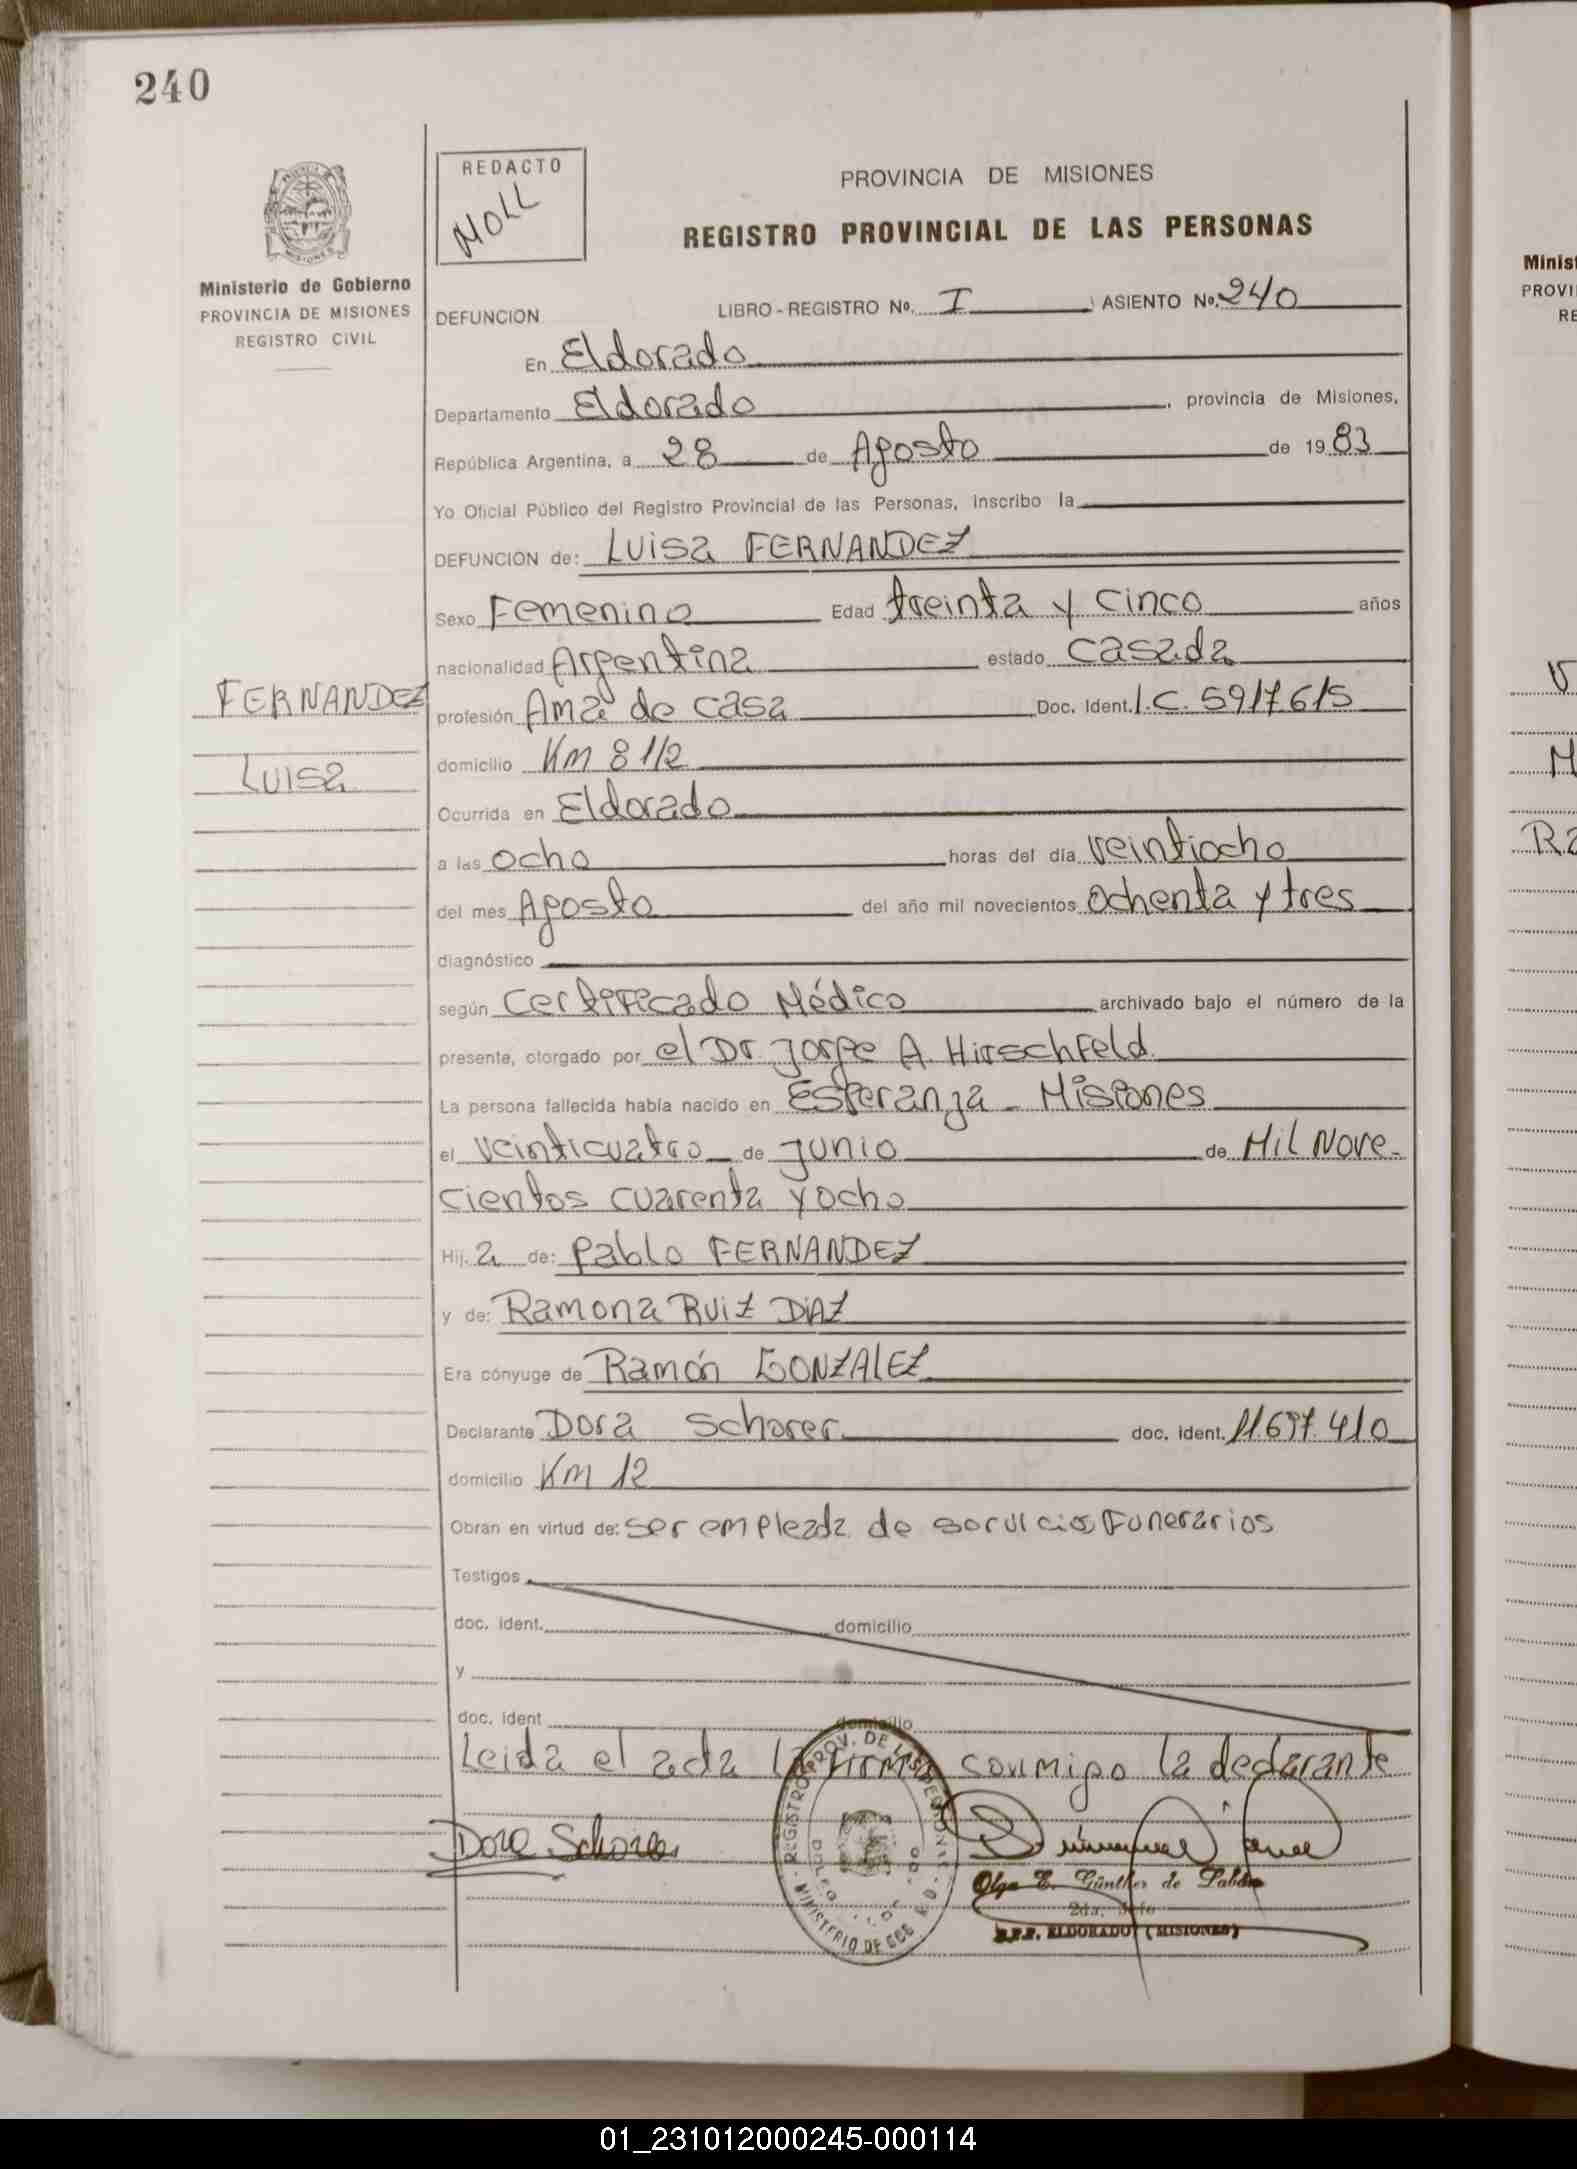 240
REDACTO
MOLL
MISIONES
Ministerio de Gobierno
PROVINCIA DE MISIONES
REGISTRO CIVIL
PROVINCIA DE MISIONES
REGISTRO PROVINCIAL DE LAS PERSONAS
DEFUNCION LIBRO - REGISTRO No. I ASIENTO No. 240
En Eldorado
Departamento Eldorado , provincia de Misiones,
República Argentina, a 28 de Agosto de 1983
Yo Oficial Público del Registro Provincial de las Personas, inscribo la
DEFUNCION de: Luisa FERNANDEZ
Sexo Femenino Edad treinta y cinco años
nacionalidad Argentina estado casada
FERNANDEZ
profesión Ama de casa Doc. Ident. I.C. 5917615
LUISA
domicilio Km 8 1/2
Ocurrida en Eldorado
a las ocho horas del día veintiocho
del mes Agosto del año mil novecientos ochenta y tres
diagnóstico
según Certificado Médico archivado bajo el número de la
presente, otorgado por el Dr. Jorge A. Hirschfeld
La persona fallecida había nacido en Esperanza - Misiones
el veinticuatro de junio de Mil Nove-
cientos cuarenta y ocho
Hij a de: Pablo FERNANDEZ
y de: Ramona RUIZ DIAZ
Era cónyuge de Ramón GONZALEZ
Declarante Dora Schorer doc. ident. 11.697.410
domicilio Km 12
Obran en virtud de: ser empleada de servicios Funerarios
Testigos
doc. ident. domicilio
y
doc. ident domicilio
Leida el acta la firma conmigo la declarante
Dora Schorer
REGISTRO PROV. DE LAS PERSONAS
MINISTERIO DE GOB
Olga E. Günther de
2da. Jefe
R.P.P. ELDORADO (MISIONES)
Minist
PROVI
RE
V
M
Ra
01_231012000245-000114